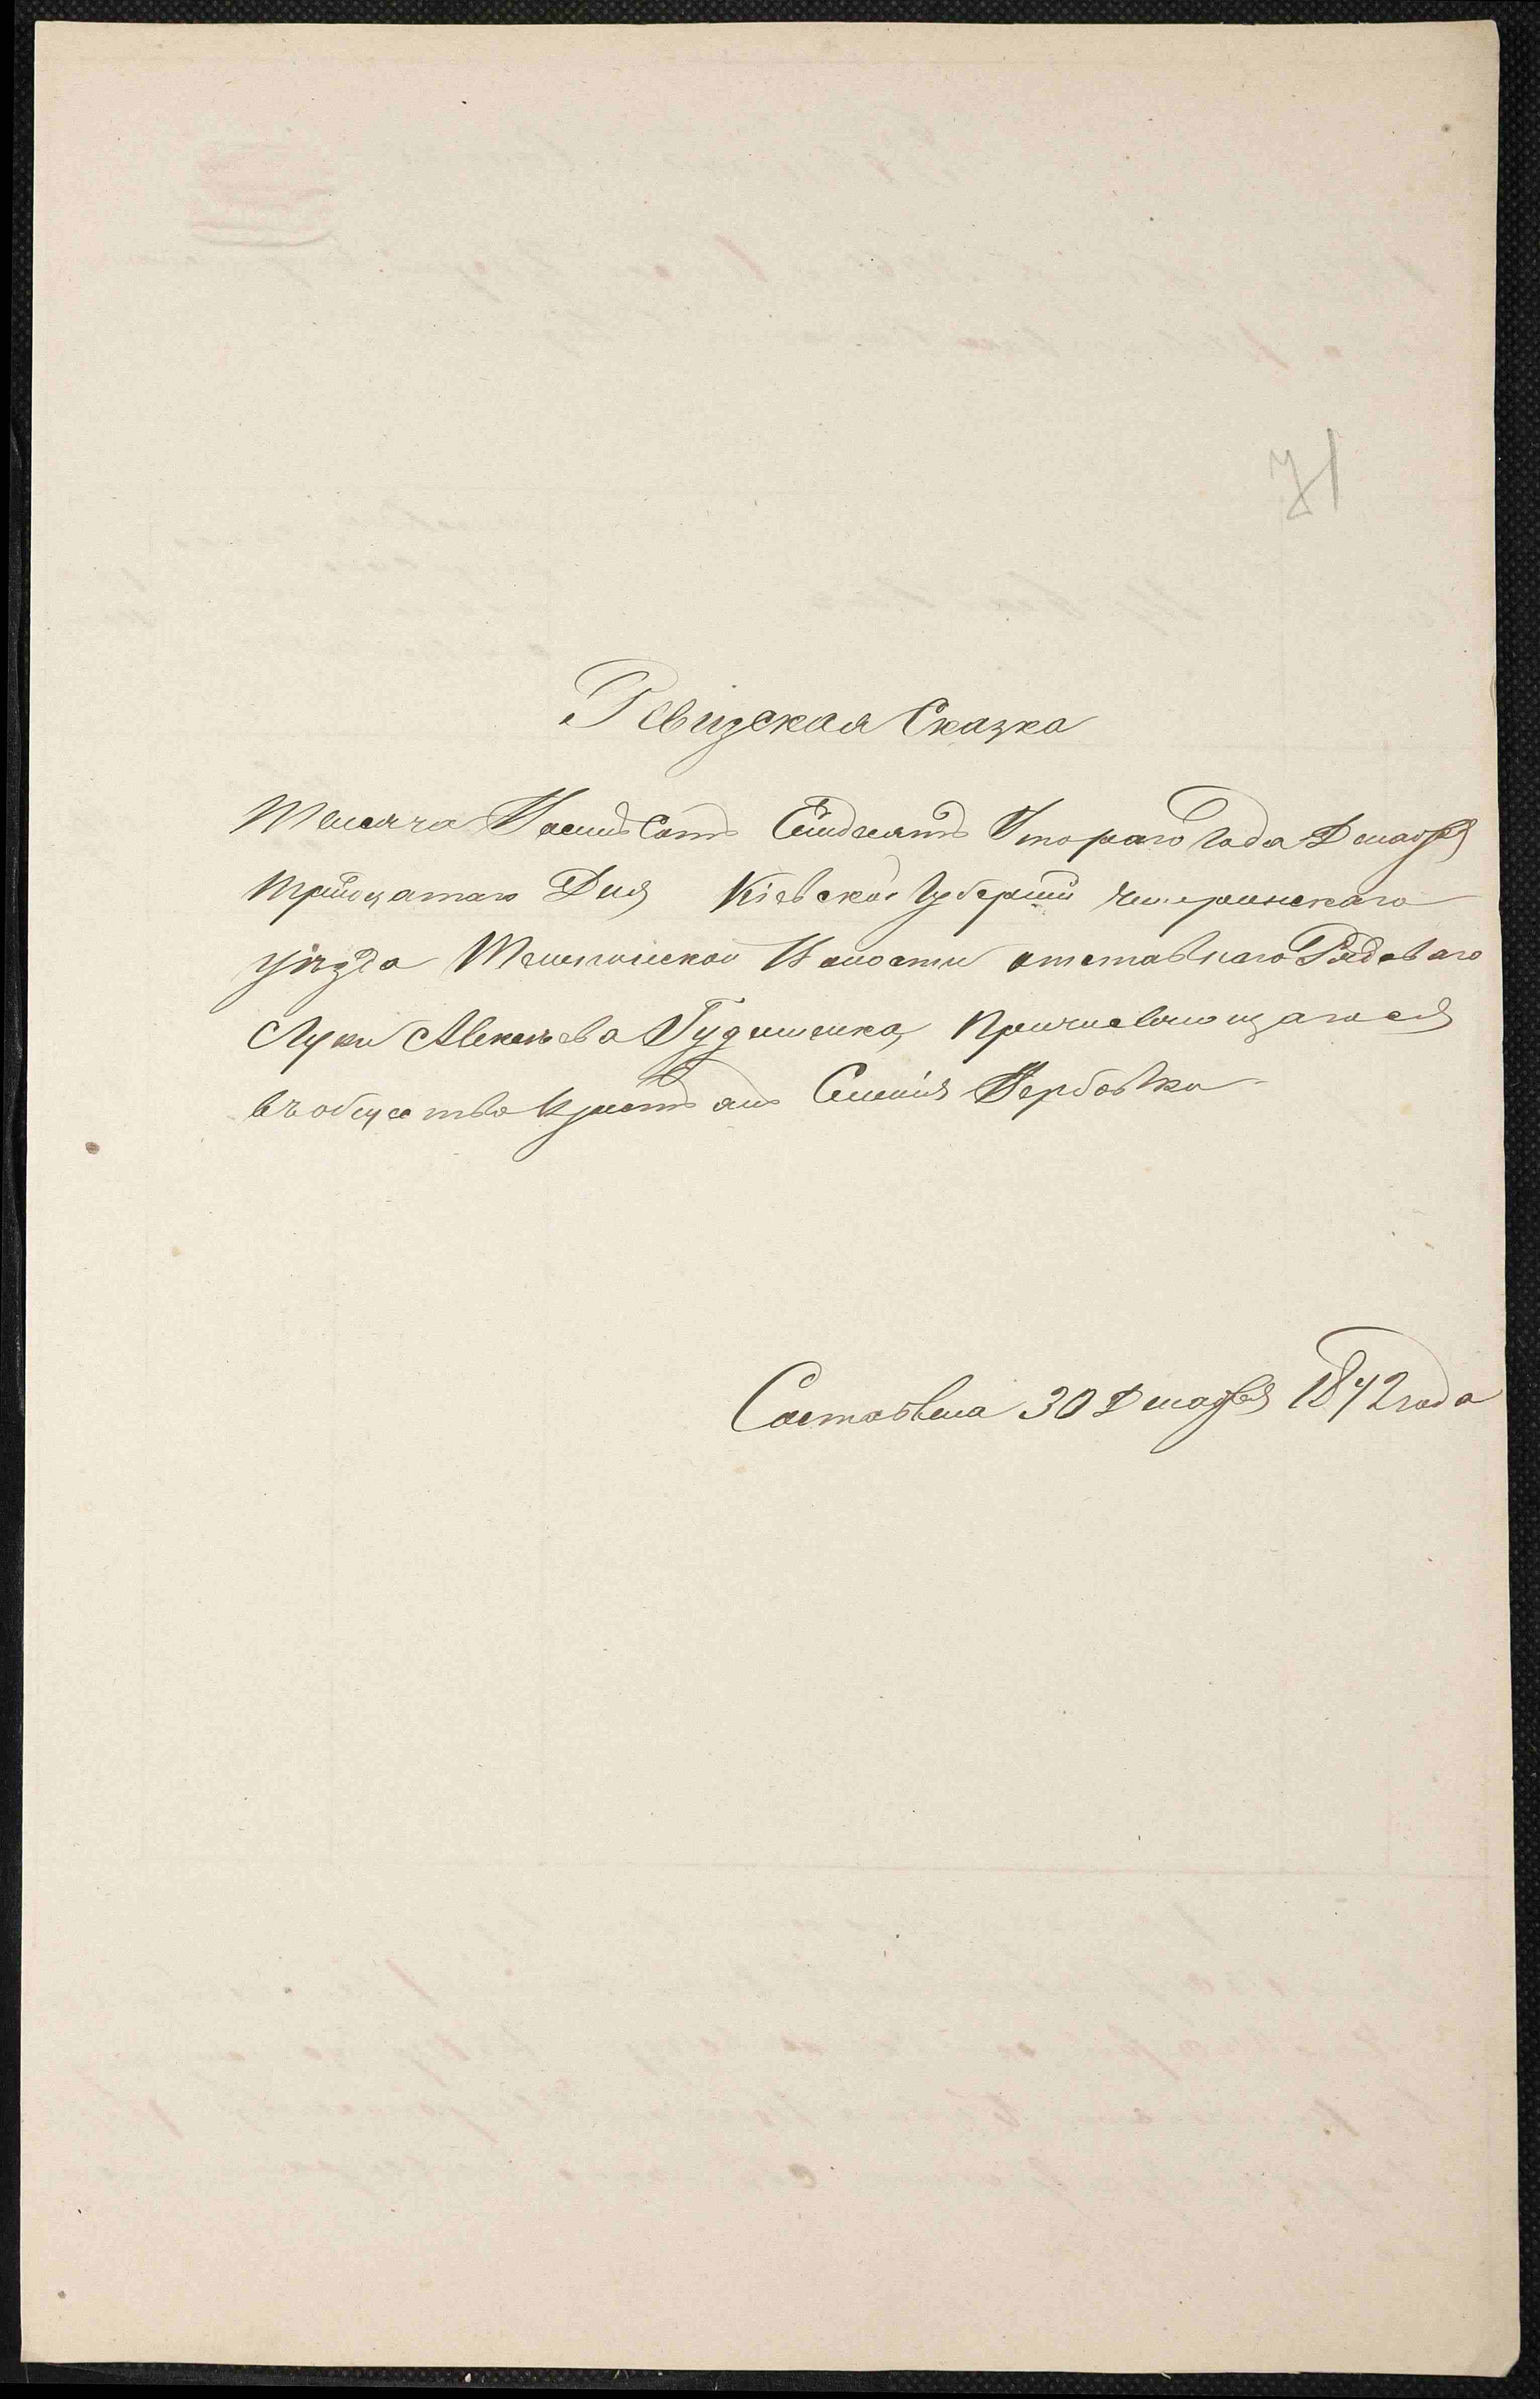 71
Ревизская Сказка
Тысяча Восемьсотъ Семдесятъ Втораго Года Декабря
тридцатаго Дня Кіевской Губерніи Чигиринскаго
уѣзда Телепинской Волости отставнаго Рядоваго
Луки Алексѣева причисляющагося
въ общество крестьянъ Селенія Вербовки
Составлена 30 Декабря 1872 года